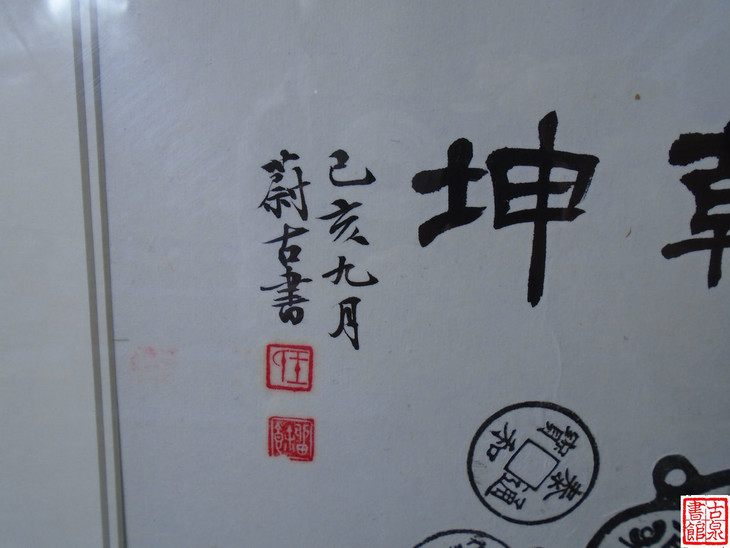 坤
己亥九月
蔚古書
任
泰和通寶
古泉
書館